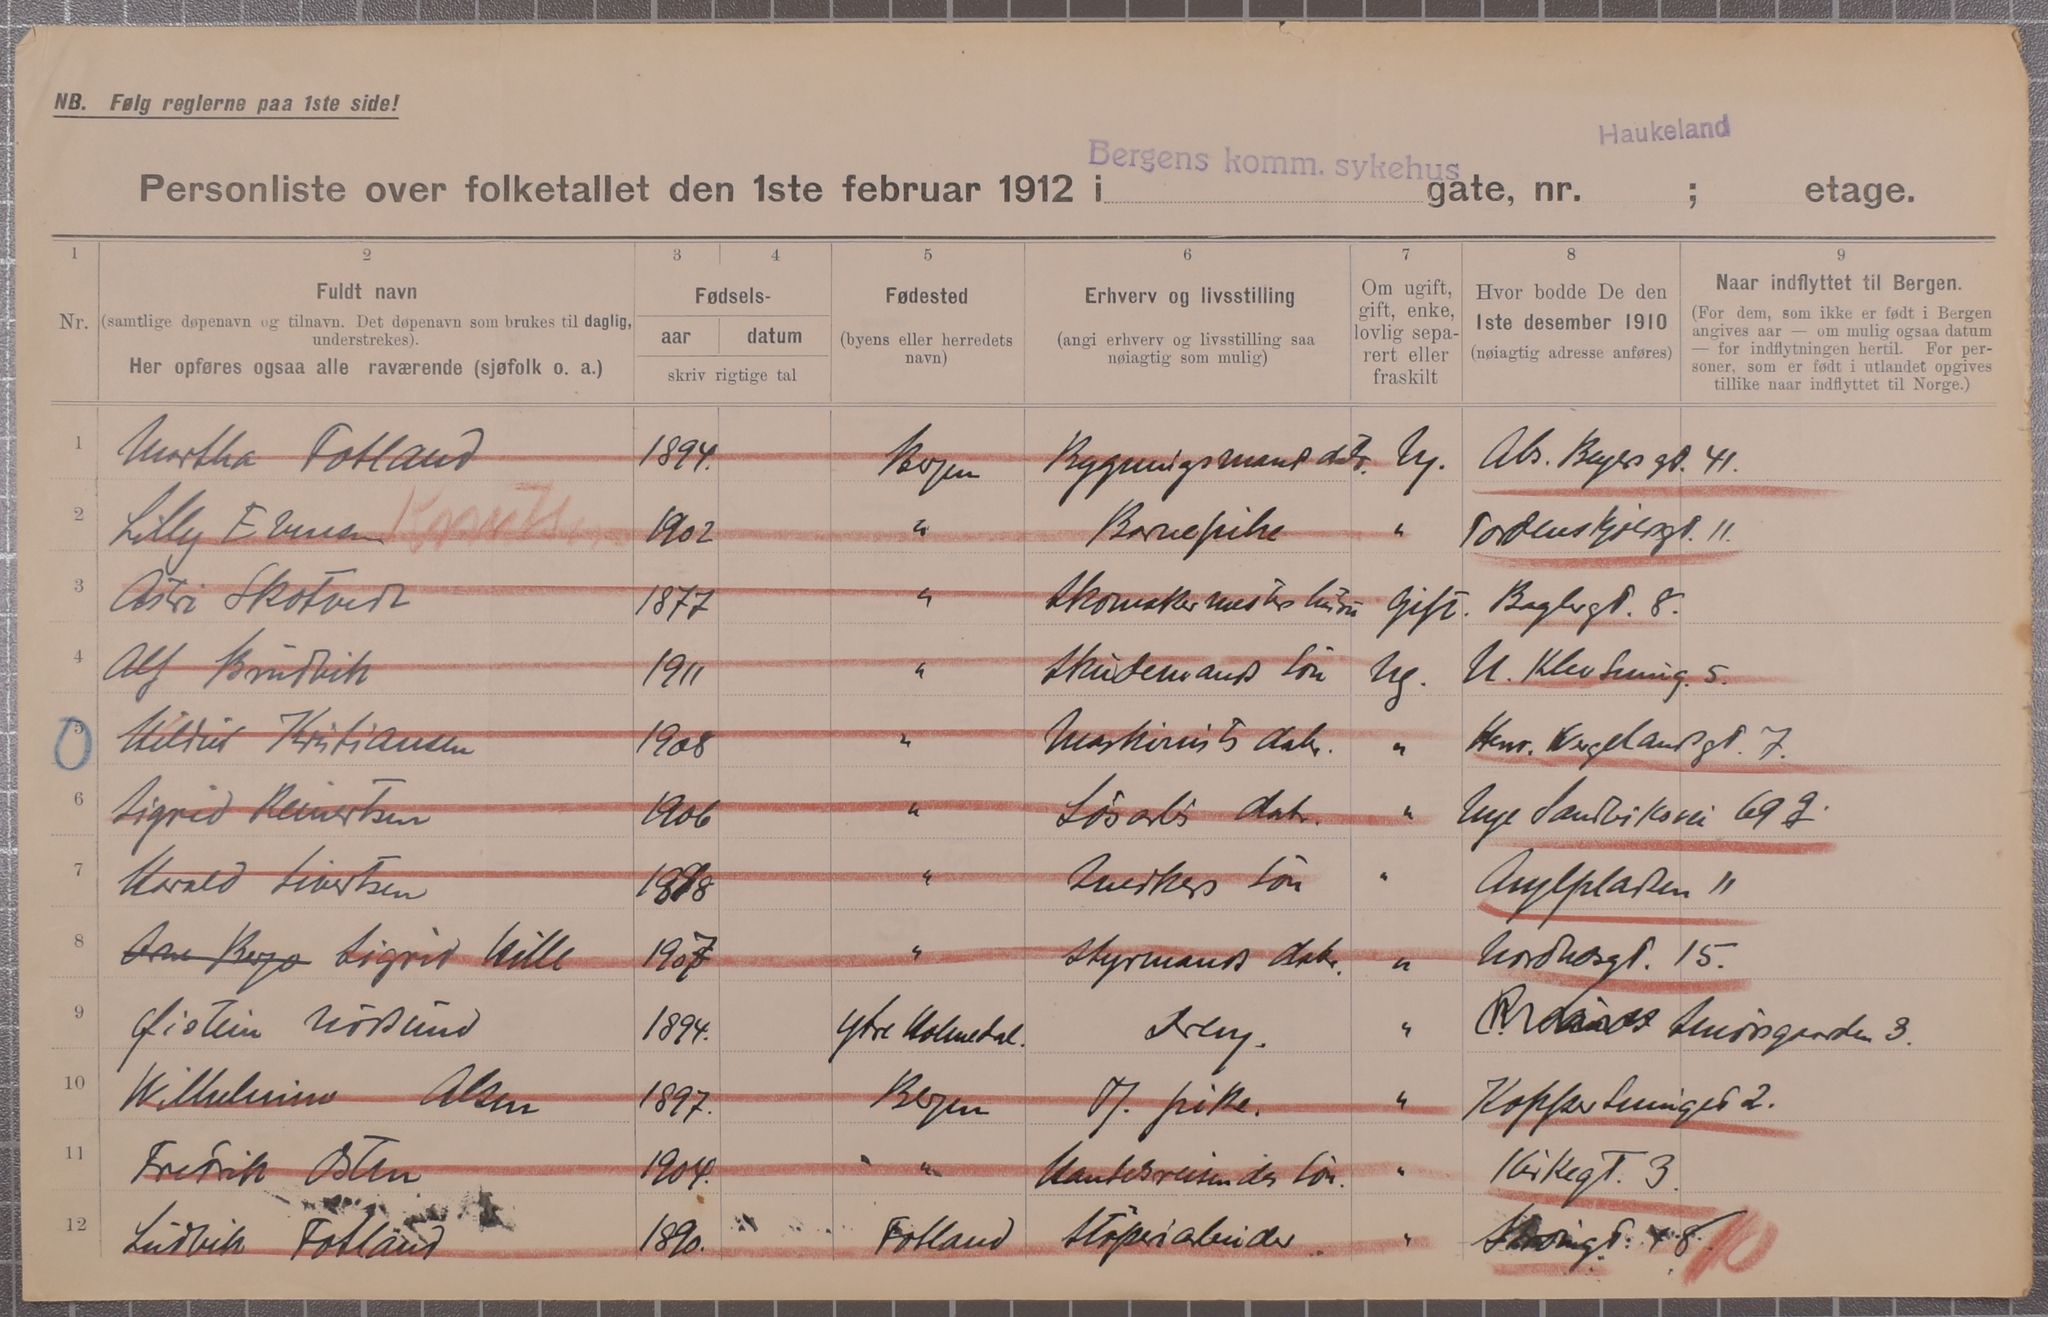 NB. Følg reglerne paa 1ste side!
Haukeland
Bergens komm. sykehus
Personliste over folketallet den 1ste februar 1912 i gate, nr. ; etage.
1 2 3 4 5 6 7 8 9
Nr.
Fuldt navn
(samtlige døpenavn og tilnavn. Det døpenavn som brukes til daglig, understrekes).
Her opføres ogsaa alle raværende (sjøfolk o. a.)
Fødsels-
aar datum
skriv rigtige tal
Fødested
(byens eller herredets navn)
Erhverv og livsstilling
(angi erhverv og livsstilling saa nøiagtig som mulig)
Om ugift, gift, enke, lovlig separert eller fraskilt
Hvor bodde De den
1ste desember 1910
(nøiagtig adresse anføres)
Naar indflyttet til Bergen.
(For dem, som ikke er født i Bergen
angives aar — om mulig ogsaa datum
— for indflytningen hertil. For per-
soner, som er født i utlandet opgives
tillike naar indflyttet til Norge.)
1 Martha Totland 1894. Bergen Bygningsmands datr. Ug. Abs. Beyers gt. 41.
2 Lilly 1902 " Barnepike " Tordenskjolsgt. 11.
3 Astri Skotvedt 1877 " Skomakermesters hustru Gift. Baglergt. 8.
4 Alf Brudvik 1911 " Skudemands Søn Ug. 5.
5 Kristiansen 1908 " Maskinists datr. " Henr. Wergelandsgt. 7.
6 Sigrid Reinertsen 1906 " Løsarb's datr. " Nye Sandviksvei 69
7 Harald Sivertsen " Snedkers Søn " 11
8 Sigrid Wille 1907 " Styrmands datr. " Nordnesgt. 15.
9 Øistein Nordlund 1894. Ytre Holmedal. Dreng. " Smørsgaarden 3.
10 Wilhelmine Olsen 1897. Bergen Tj. pike. " 2.
11 Fredrik Osten 1904. " Handelsreisendes Søn. " Kirkegt. 3.
12 Ludvik Totland 1890. Totland Støperiarbeider "